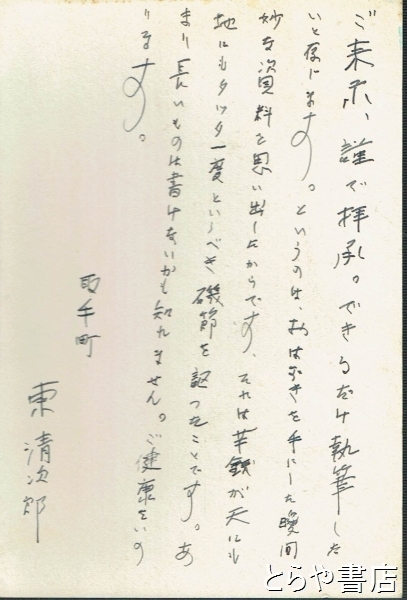 ご来示、謹で拝承。できるだけ執筆した
いと存じます。というのは、おはがきを手にした瞬間
妙な資料を思い出したからです、それは芋銭が天にも
地にもタッタ一度というべき磯節を謳つたことです。あ
まり長いものは書けないかも知れません。ご健康をいの
ります。
取手町
東清次郎
とらや書店